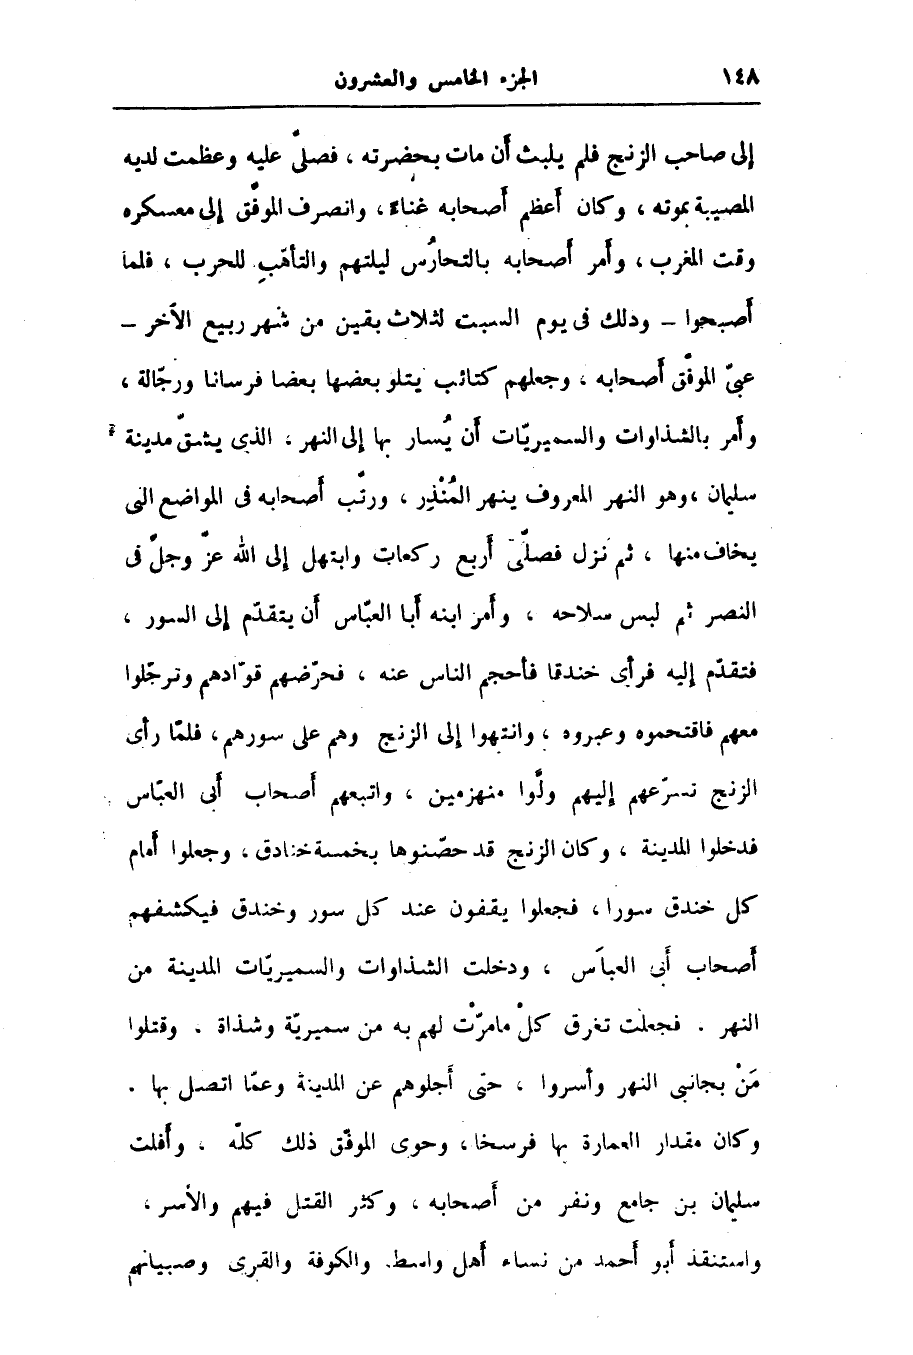 ١٤٨ الجزء الخامس والعشرون
إلى صاحب الزنج فلم يلبث أن مات بحضرته ، فصلّى عليه وعظمت لديه
المصيبة بموته ، وكان أعظم أصحابه غناءً ، وانصرف الموفّق إلى معسكره
وقت المغرب ، وأمر أصحابه بالتحارُس ليلتهم والتأهّب للحرب ، فلما
أصبحوا – وذلك فى يوم السبت لثلاث بقين من شهر ربيع الآخر –
عبىّ الموفّق أصحابه ، وجعلهم كتائب يتلو بعضها بعضا فرسانا ورجّالة ،
وأمر بالشذاوات والسميريّات أن يُسار بها إلى النهر ، الذى يشقّ مدينة
سليمان ، وهو النهر المعروف بنهر المُنْذِر ، ورتّب أصحابه فى المواضع التى
يخاف منها ، ثم نزل فصلّى أربع ركعات وابتهل إلى الله عزّ وجلّ فى
النصر ثم لبس سلاحه ، وأمر ابنه أبا العبّاس أن يتقدّم إلى السور ،
فتقدّم إليه فرأى خندقا فأحجم الناس عنه ، فحرّضهم قوّادهم وترجّلوا
معهم فاقتحموه وعبروه ، وانتهوا إلى الزنج وهم على سورهم ، فلمّا رأى
الزنج تسرّعهم إليهم ولَّوا منهزمين ، واتبعهم أصحاب أبى العبّاس
فدخلوا المدينة ، وكان الزنج قد حصّنوها بخمسة خنادق ، وجعلوا أمام
كل خندق سورا ، فجعلوا يقفون عند كل سور وخندق فيكشفهم
أصحاب أبى العباس ، ودخلت الشذاوات والسميريّات المدينة من
النهر . فجعلت تغرق كلّ مامرّت لهم به من سميريّة وشذاة . وقتلوا
مَنْ بجانبى النهر وأسروا ، حتى أجلوهم عن المدينة وعمّا اتصل بها .
وكان مقدار العمارة بها فرسخا ، وحوى الموفّق ذلك كلّه ، وأفلت
سليمان بن جامع ونفر من أصحابه ، وكثر القتل فيهم والأسر ،
واستنقذ أبو أحمد من نساء أهل واسط والكوفة والقرى وصبيانهم